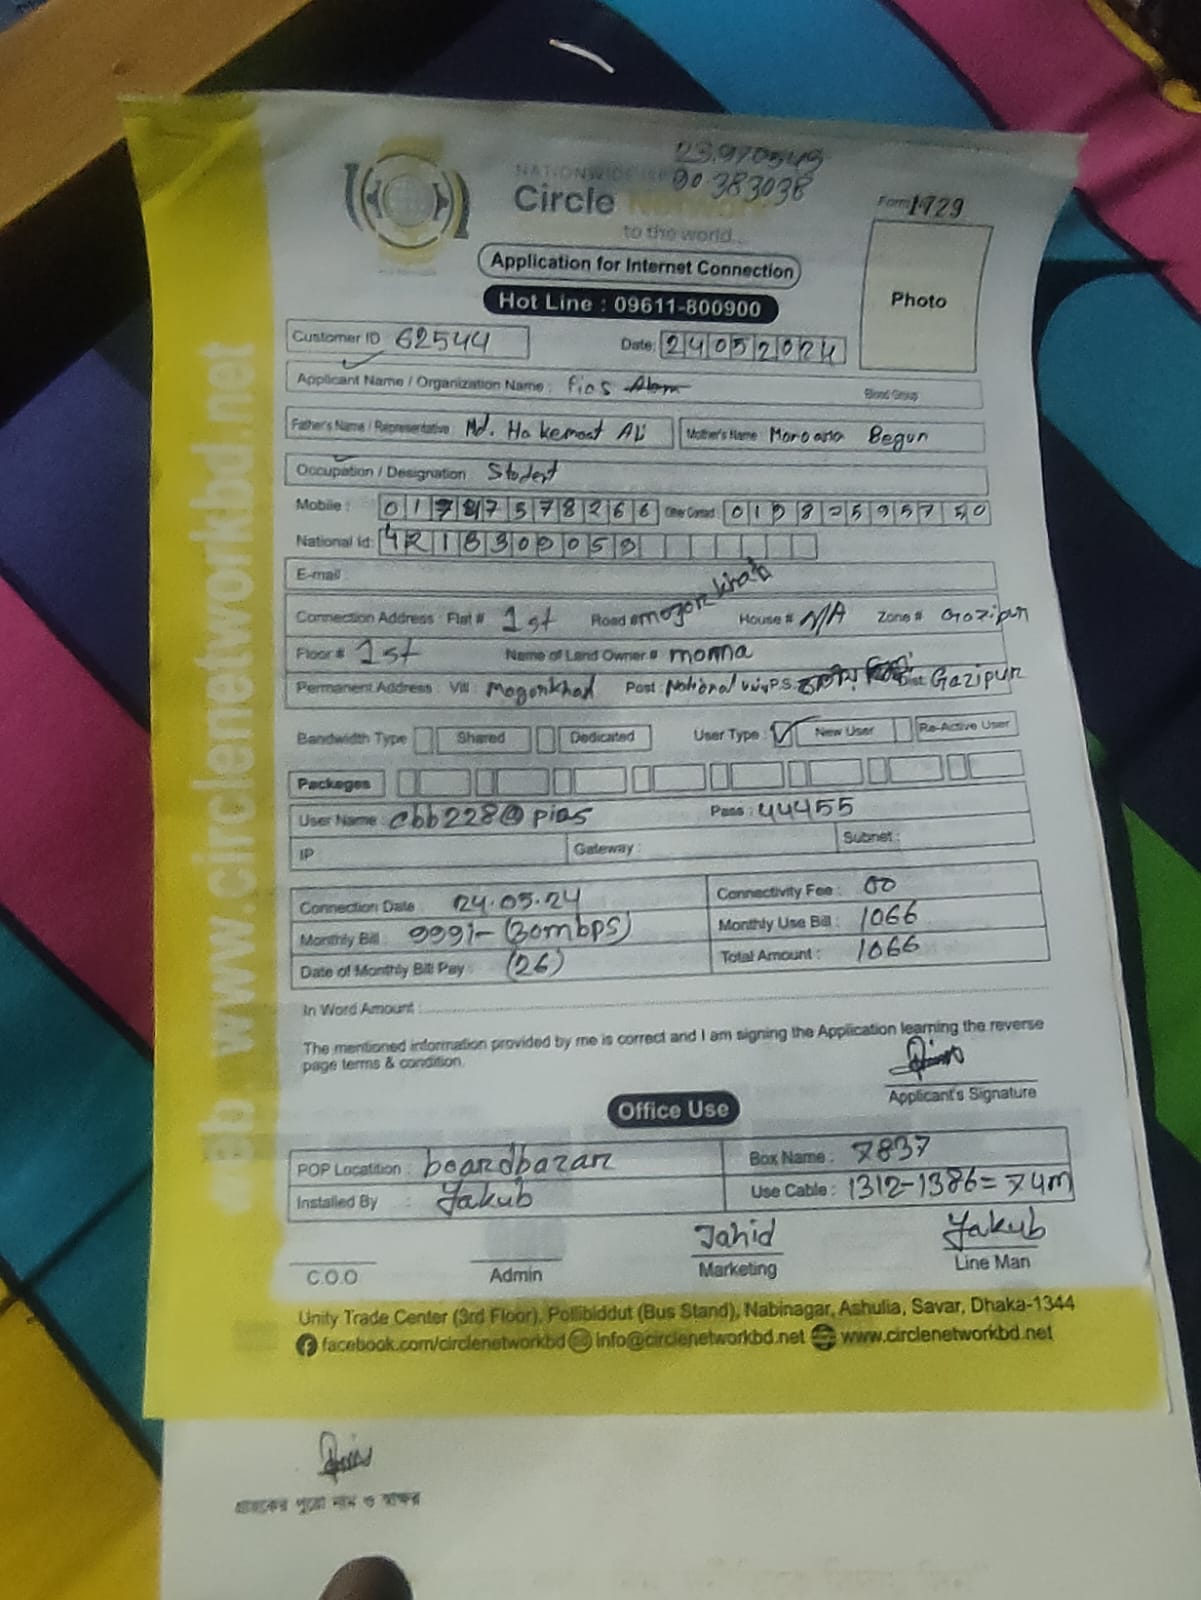 23.970549
90.383038
NATIONWIDE ISP
Circle Network
to the world...
Form 1729
Application for Internet Connection
Hot Line : 09611-800900
Photo
Customer ID 62544
Date: 24052024
Applicant Name / Organization Name : Pias Alam
Blood Group
Father's Name / Representative Md. Hakemat Ali
Mother's Name Begun
Occupation / Designation Student
Mobile : 7578266 Other Contact
National Id:
E-mail :
Connection Address : Flat # 1st Road # mogorkhal House # N/A Zone # Gazipur
Floor # 1st Name of Land Owner # monna
Permanent Address : Vill : Mogorkhal Post : National univ P.S. Dist Gazipur
Bandwidth Type Shared Dedicated User Type : New User Re-Active User
Packages
User Name cbb228@pias Pass : 44455
IP Gateway : Subnet :
Connection Date : 24.05.24 Connectivity Fee : 00
Monthly Bill : 999/- (30mbps) Monthly Use Bill : 1066
Date of Monthly Bill Pay : (26) Total Amount : 1066
In Word Amount :
The mentioned information provided by me is correct and I am signing the Application learning the reverse
page terms & condition.
Applicant's Signature
Office Use
POP Locatition : boardbazar Box Name : 7837
Installed By : Yakub Use Cable : 1312-1386=74m
Jahid Yakub
C.O.O Admin Marketing Line Man
Unity Trade Center (3rd Floor), Pollibiddut (Bus Stand), Nabinagar, Ashulia, Savar, Dhaka-1344
facebook.com/circlenetworkbd info@circlenetworkbd.net www.circlenetworkbd.net
www.circlenetworkbd.net
গ্রাহকের পুরো নাম ও স্বাক্ষর